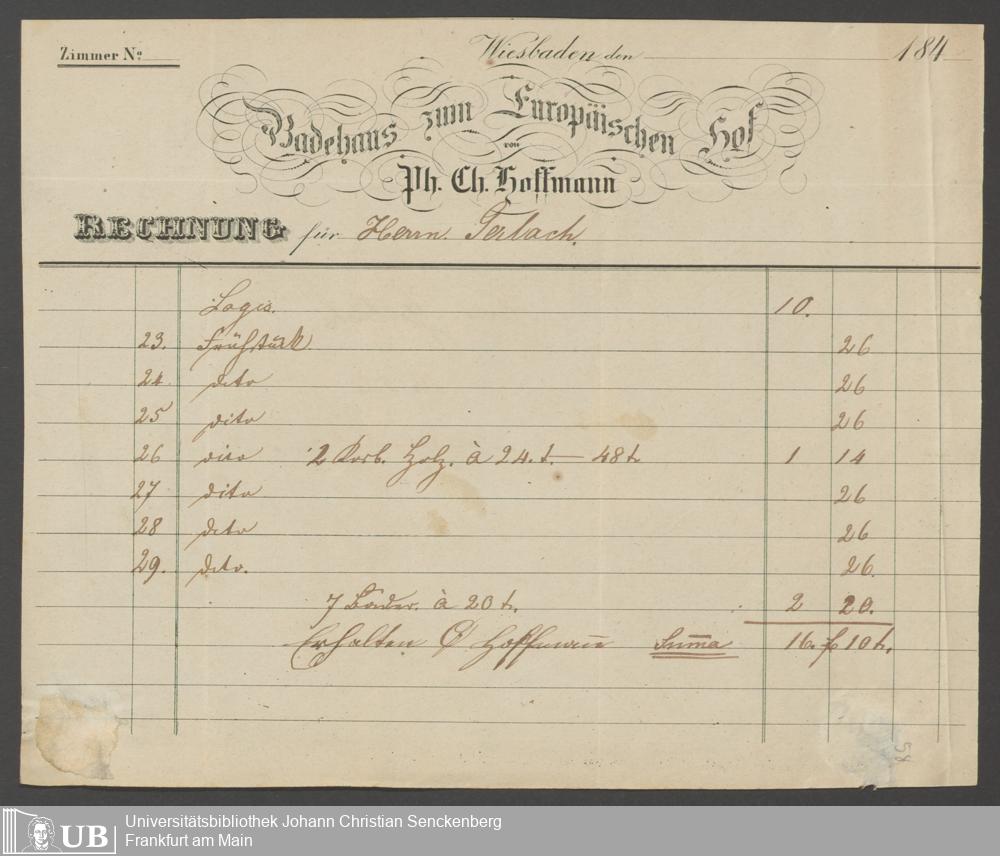 Zimmer No
Wiesbaden den 184
Badehaus zum Europäischen Hof
von
Ph. Ch. Hoffmann
RECHNUNG für Herrn. Gerlach.
Logis. 10.
23. Frühstück 26
24 dito 26
25 dito 26
26 dito 2 Korb. Holz. à 24. x. — 48 x 1 14
27 dito 26
28 dito 26
29. dito. 26.
7 Bäder. à 20 x. 2 20.
Erhalten Hoffmann Summa 16. f 10 x.
58
UB Universitätsbibliothek Johann Christian Senckenberg
Frankfurt am Main